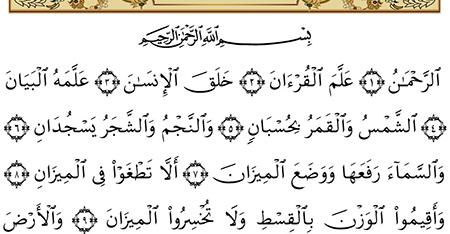 بِسْمِ ٱللَّهِ ٱلرَّحْمَٰنِ ٱلرَّحِيمِ
ٱلرَّحْمَٰنُ ﴿١﴾ عَلَّمَ ٱلْقُرْءَانَ ﴿٢﴾ خَلَقَ ٱلْإِنسَٰنَ ﴿٣﴾ عَلَّمَهُ ٱلْبَيَانَ
﴿٤﴾ ٱلشَّمْسُ وَٱلْقَمَرُ بِحُسْبَانٍ ﴿٥﴾ وَٱلنَّجْمُ وَٱلشَّجَرُ يَسْجُدَانِ ﴿٦﴾
وَٱلسَّمَآءَ رَفَعَهَا وَوَضَعَ ٱلْمِيزَانَ ﴿٧﴾ أَلَّا تَطْغَوْا۟ فِى ٱلْمِيزَانِ ﴿٨﴾
وَأَقِيمُوا۟ ٱلْوَزْنَ بِٱلْقِسْطِ وَلَا تُخْسِرُوا۟ ٱلْمِيزَانَ ﴿٩﴾ وَٱلْأَرْضَ